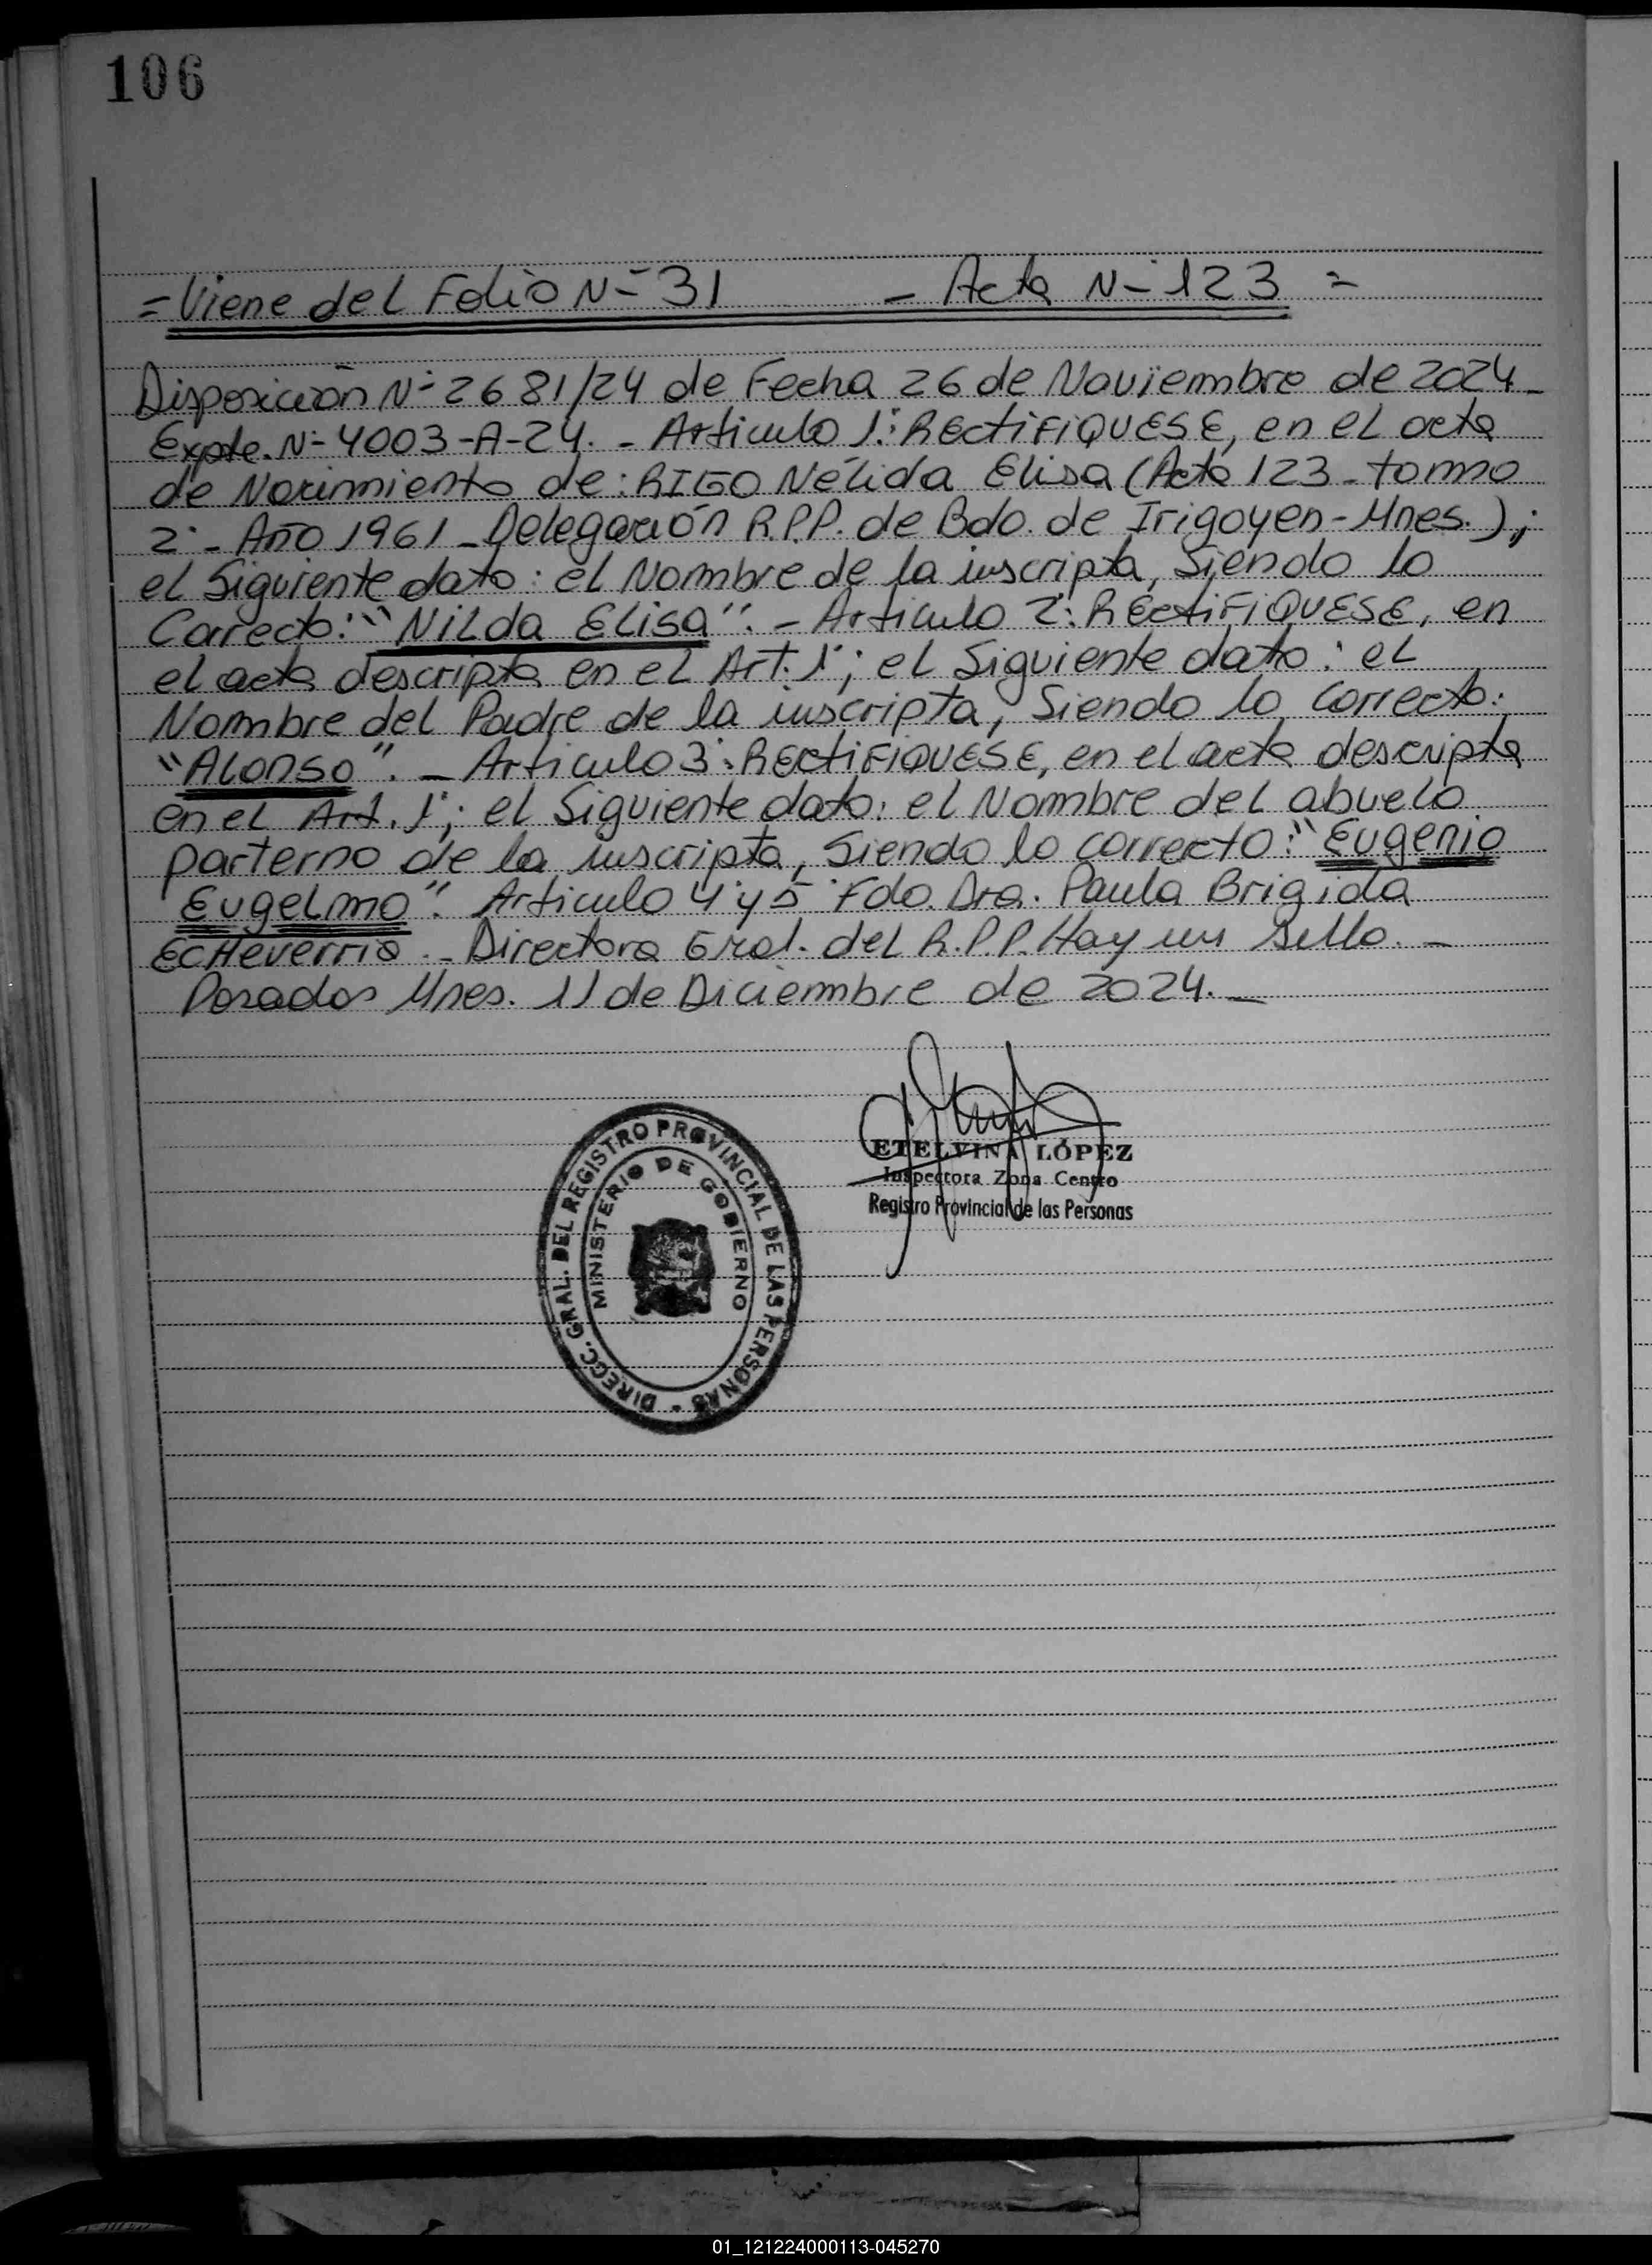 106
= Viene del Folio N- 31 - Acta N- 123 =
Disposición N- 2681/24 de Fecha 26 de Noviembre de 2024 -
Expte. N- 4003-A-24. - Articulo 1: RECtiFiQUESE, en el acta
de Nacimiento de: RIGO Nélida Elisa (Acta 123 - tommo
2 - Año 1961 - Delegación R.P.P. de Bdo. de Irigoyen - Mnes.);
el Siguiente dato: el Nombre de la inscripta, Siendo lo
Correcto: "Nilda Elisa". - Articulo 2: RECtiFiQUESE, en
el acta descripta en el Art. 1; el Siguiente dato: el
Nombre del Padre de la inscripta, Siendo lo correcto:
"Alonso". - Articulo 3: RECtiFiQUESE, en el acta descripta
en el Art. 1; el Siguiente dato: el Nombre del abuelo
parterno de la inscripta, Siendo lo correcto: "Eugenio
Eugelmo". Articulo 4 y 5 Fdo. Dra. Paula Brigida
Echeverria. - Directora Gral. del R.P.P. Hay un Sello. -
Posadas Mnes. 11 de Diciembre de 2024. -
ETELVINA LÓPEZ
Inspectora Zona Centro
Registro Provincial de las Personas
DIRECC. GRAL. DEL REGISTRO PROVINCIAL DE LAS PERSONAS -
MINISTERIO DE GOBIERNO
01_121224000113-045270